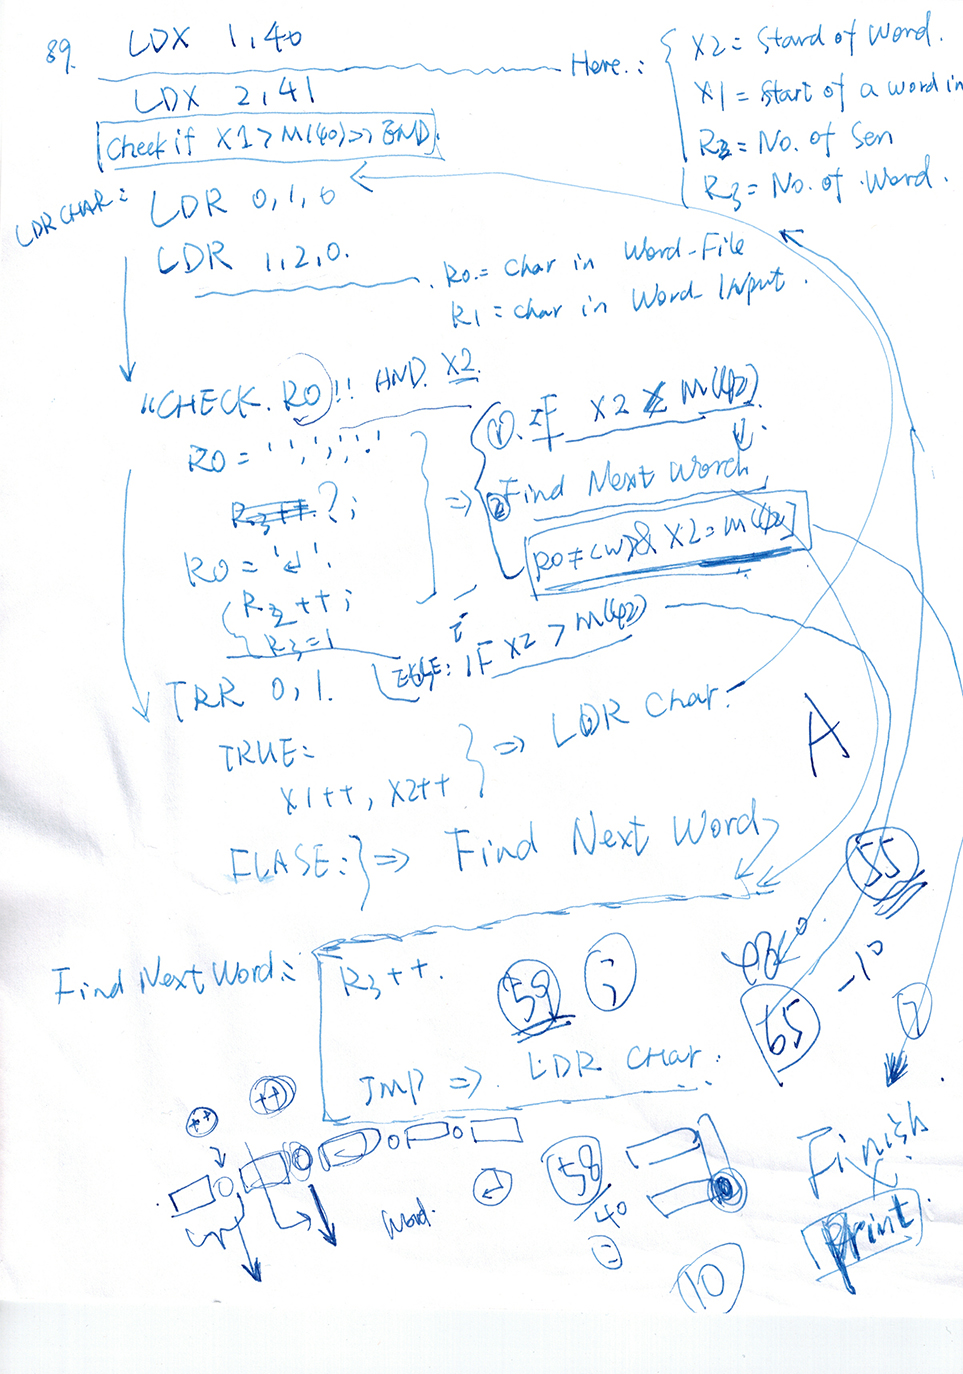 89.
LDX 1,40
LDX 2,41
Check if X1 > M(40) => END.
Here.:
X2 = Stard of Word.
X1 = Start of a word in
R2 = No. of Sen
R3 = No. of Word.
LDR CHAR:
LDR 0,1,0
LDR 1,2,0.
R0 = Char in Word-File
R1 = char in Word-Input.
"CHECK. R0!! AND. X2
R0 = ' ', ';', '.'
R3++. ?;
R0 = '↲'.
R2++;
R3=1
=>
①. IF X2 M(42)
② Find Next Word
R0≠(W)& X2=M(42)
ELSE: IF X2 > M(42)
TRR 0,1.
TRUE:
X1++, X2++
=> LDR Char.
A
FLASE: => Find Next Word
55
Find Next Word:
R3++.
59
;
65
-10
?
JMP => LDR CHar.
++
++
word.
↲
58
40
10
Finish
print